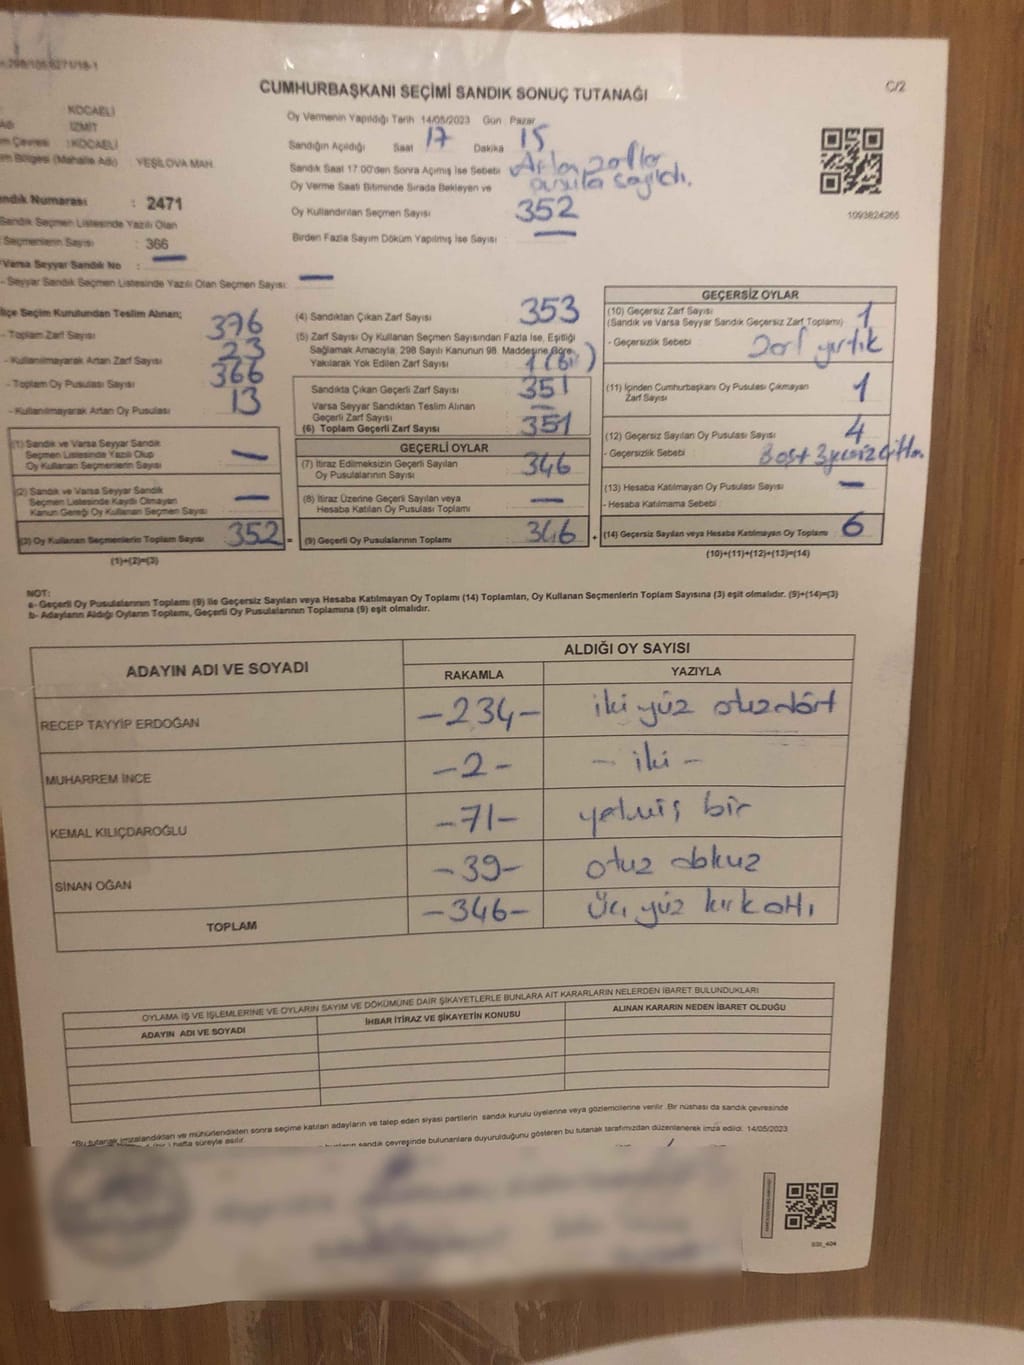 298/105/6271/18-1
CUMHURBAŞKANI SEÇİMİ SANDIK SONUÇ TUTANAĞI
C/2
: KOCAELİ
Adı : İZMİT
m Çevresi : KOCAELİ
m Bölgesi (Mahalle Adı) : YEŞİLOVA MAH.
ndık Numarası : 2471
Sandık Seçmen Listesinde Yazılı Olan
Seçmenlerin Sayısı : 366
Varsa Seyyar Sandık No —
- Seyyar Sandık Seçmen Listesinde Yazılı Olan Seçmen Sayısı: —
Oy Vermenin Yapıldığı Tarih 14/05/2023 Gün Pazar
Sandığın Açıldığı Saat 17 Dakika 15
Sandık Saat 17:00'den Sonra Açılmış İse Sebebi Artan zarflar
pusula sayıldı.
Oy Verme Saati Bitiminde Sırada Bekleyen ve
Oy Kullandırılan Seçmen Sayısı 352
Birden Fazla Sayım Döküm Yapılmış İse Sayısı : —
1093824265
İlçe Seçim Kurulundan Teslim Alınan;
- Toplam Zarf Sayısı 376
- Kullanılmayarak Artan Zarf Sayısı 23
- Toplam Oy Pusulası Sayısı 366
- Kullanılmayarak Artan Oy Pusulası 13
(1) Sandık ve Varsa Seyyar Sandık
Seçmen Listesinde Yazılı Olup
Oy Kullanan Seçmenlerin Sayısı —
(2) Sandık ve Varsa Seyyar Sandık
Seçmen Listesinde Kaydı Olmayan
Kanun Gereği Oy Kullanan Seçmen Sayısı —
(3) Oy Kullanan Seçmenlerin Toplam Sayısı 352 =
(1)+(2)=(3)
(4) Sandıktan Çıkan Zarf Sayısı 353
(5) Zarf Sayısı Oy Kullanan Seçmen Sayısından Fazla İse, Eşitliği
Sağlamak Amacıyla, 298 Sayılı Kanunun 98. Maddesine Göre
Yakılarak Yok Edilen Zarf Sayısı 1 (Bir)
Sandıkta Çıkan Geçerli Zarf Sayısı 351
Varsa Seyyar Sandıktan Teslim Alınan
Geçerli Zarf Sayısı —
(6) Toplam Geçerli Zarf Sayısı 351
GEÇERLİ OYLAR
(7) İtiraz Edilmeksizin Geçerli Sayılan
Oy Pusulalarının Sayısı 346
(8) İtiraz Üzerine Geçerli Sayılan veya
Hesaba Katılan Oy Pusulası Toplamı —
(9) Geçerli Oy Pusulalarının Toplamı : 346 +
GEÇERSİZ OYLAR
(10) Geçersiz Zarf Sayısı
(Sandık ve Varsa Seyyar Sandık Geçersiz Zarf Toplamı) 1
- Geçersizlik Sebebi : Zarf yırtık
(11) İçinden Cumhurbaşkanı Oy Pusulası Çıkmayan
Zarf Sayısı 1
(12) Geçersiz Sayılan Oy Pusulası Sayısı : 4
- Geçersizlik Sebebi
(13) Hesaba Katılmayan Oy Pusulası Sayısı : —
- Hesaba Katılmama Sebebi :
(14) Geçersiz Sayılan veya Hesaba Katılmayan Oy Toplamı : 6
(10)+(11)+(12)+(13)=(14)
NOT:
a- Geçerli Oy Pusulalarının Toplamı (9) ile Geçersiz Sayılan veya Hesaba Katılmayan Oy Toplamı (14) Toplamları, Oy Kullanan Seçmenlerin Toplam Sayısına (3) eşit olmalıdır. (9)+(14)=(3)
b- Adayların Aldığı Oyların Toplamı, Geçerli Oy Pusulalarının Toplamına (9) eşit olmalıdır.
ADAYIN ADI VE SOYADI
ALDIĞI OY SAYISI
RAKAMLA YAZIYLA
RECEP TAYYİP ERDOĞAN -234- iki yüz otuzdört
MUHARREM İNCE -2- - iki -
KEMAL KILIÇDAROĞLU -71- yetmiş bir
SİNAN OĞAN -39- otuz dokuz
TOPLAM -346- üç yüz kırkaltı
OYLAMA İŞ VE İŞLEMLERİNE VE OYLARIN SAYIM VE DÖKÜMÜNE DAİR ŞİKAYETLERLE BUNLARA AİT KARARLARIN NELERDEN İBARET BULUNDUKLARI
ADAYIN ADI VE SOYADI İHBAR İTİRAZ VE ŞİKAYETİN KONUSU ALINAN KARARIN NEDEN İBARET OLDUĞU
*Bu tutanak imzalandıktan ve mühürlendikten sonra seçime katılan adayların ve talep eden siyasi partilerin sandık kurulu üyelerine veya gözlemcilerine verilir. Bir nüshası da sandık çevresinde
hafta süreyle asılır.
sandık çevresinde bulunanlara duyurulduğunu gösteren bu tutanak tarafımızdan düzenlenerek imza edildi. 14/05/2023